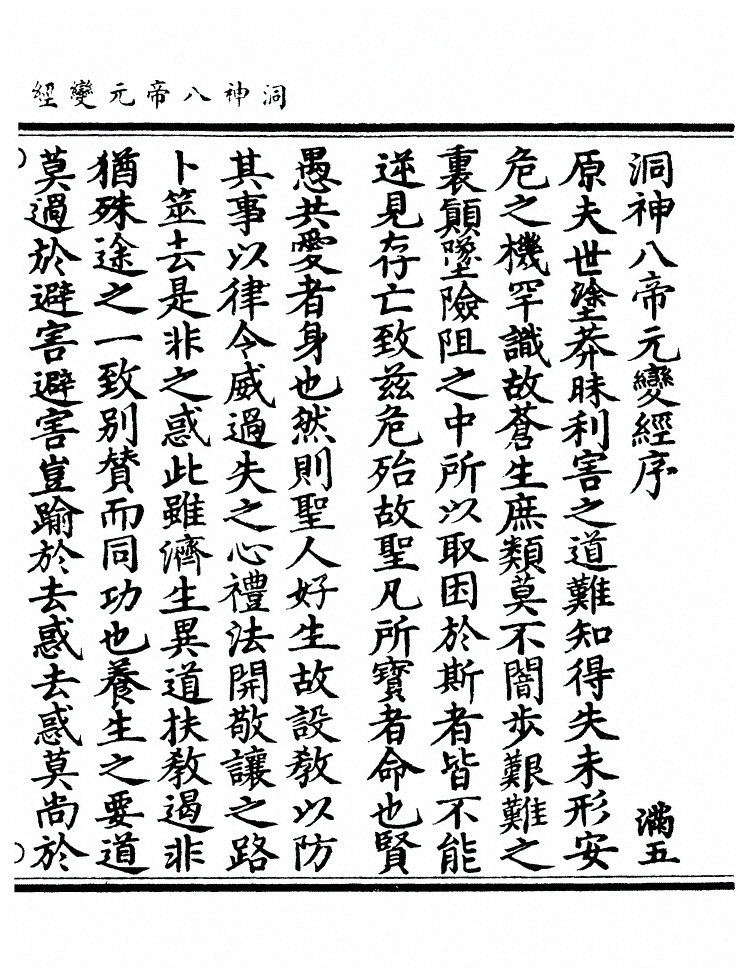 洞神八帝元變經
洞神八帝元變經序
滿五
原夫世塗莽昧利害之道難知得失未形安
危之機罕識故蒼生庶類莫不闇步艱難之
裏顛墜險阻之中所以取困於斯者皆不能
逆見存亡致兹危殆故聖凡所寶者命也賢
愚共愛者身也然則聖人好生故設教以防
其事以律令威過失之心禮法開敬讓之路
卜筮去是非之惑此雖濟生異道扶教遏非
猶殊途之一致別贊而同功也養生之要道
莫過於避害避害豈踰於去惑去惑莫尚於